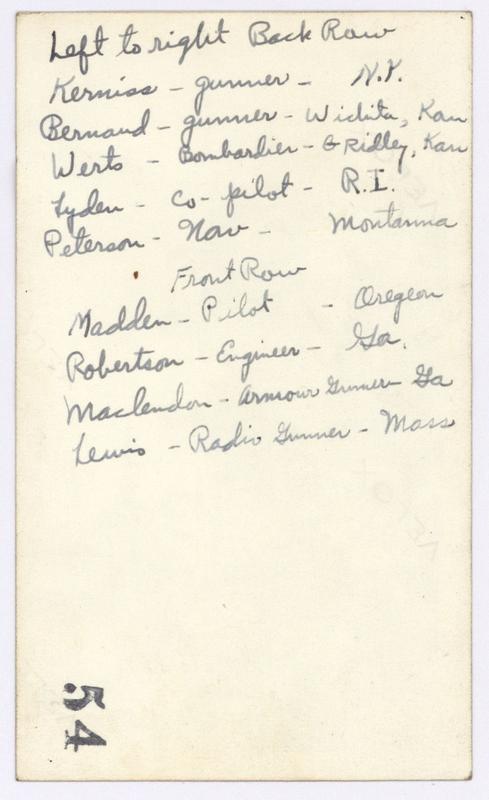 Left to right Back Row
Kerniss - gunner - N.Y.
Bernaud - gunner - Wichita, Kan
Werts - Bombardier - Gridley, Kan
Lyden - Co-pilot - R.I.
Peterson - Nav - Montanna
Front Row
Madden - Pilot - Oregeon
Robertson - Engineer - Ga.
Maclendon - Armour Gunner - Ga
Lewis - Radio Gunner - Mass
54